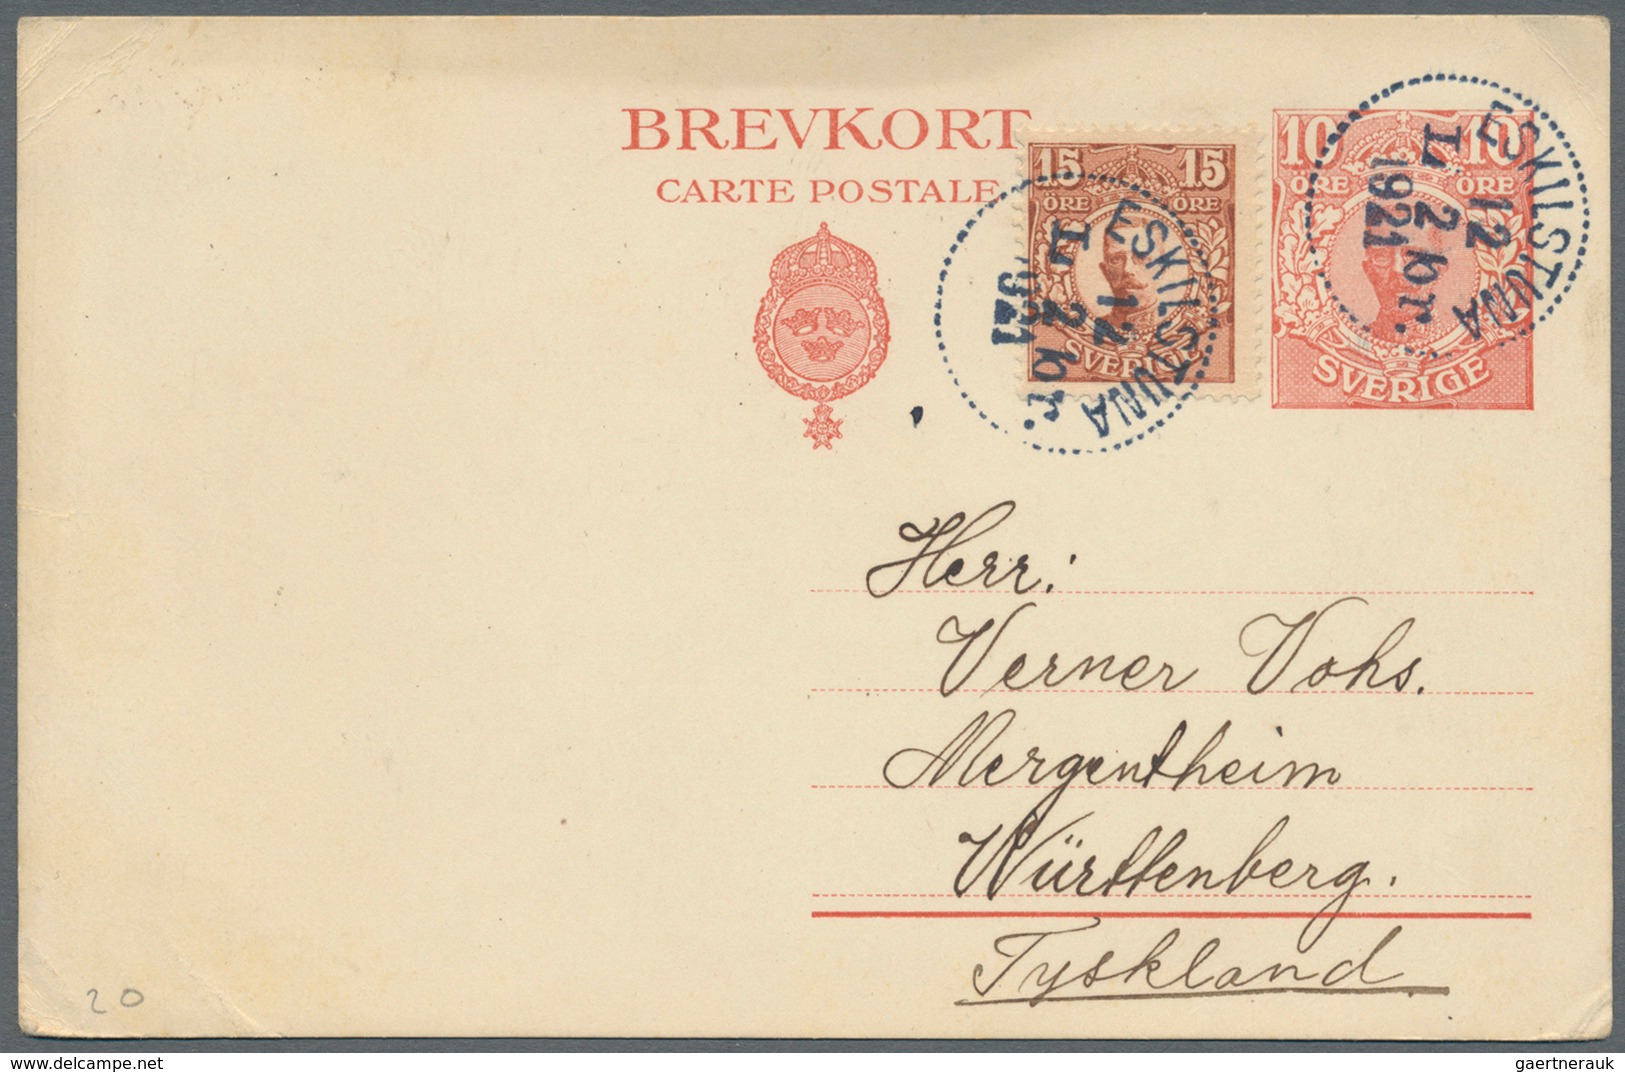 BREVKORT
CARTE POSTALE
15 15
ÖRE ÖRE
SVERIGE
10 10
ÖRE ÖRE
SVERIGE
ESKILSTUNA
12
2 br.
1921
L.
ESKILSTUNA
12
2 br.
1921
L
Herr:
Verner Vohs.
Mergentheim
Württenberg.
Tyskland
20
www.delcampe.net
gaertnerauk